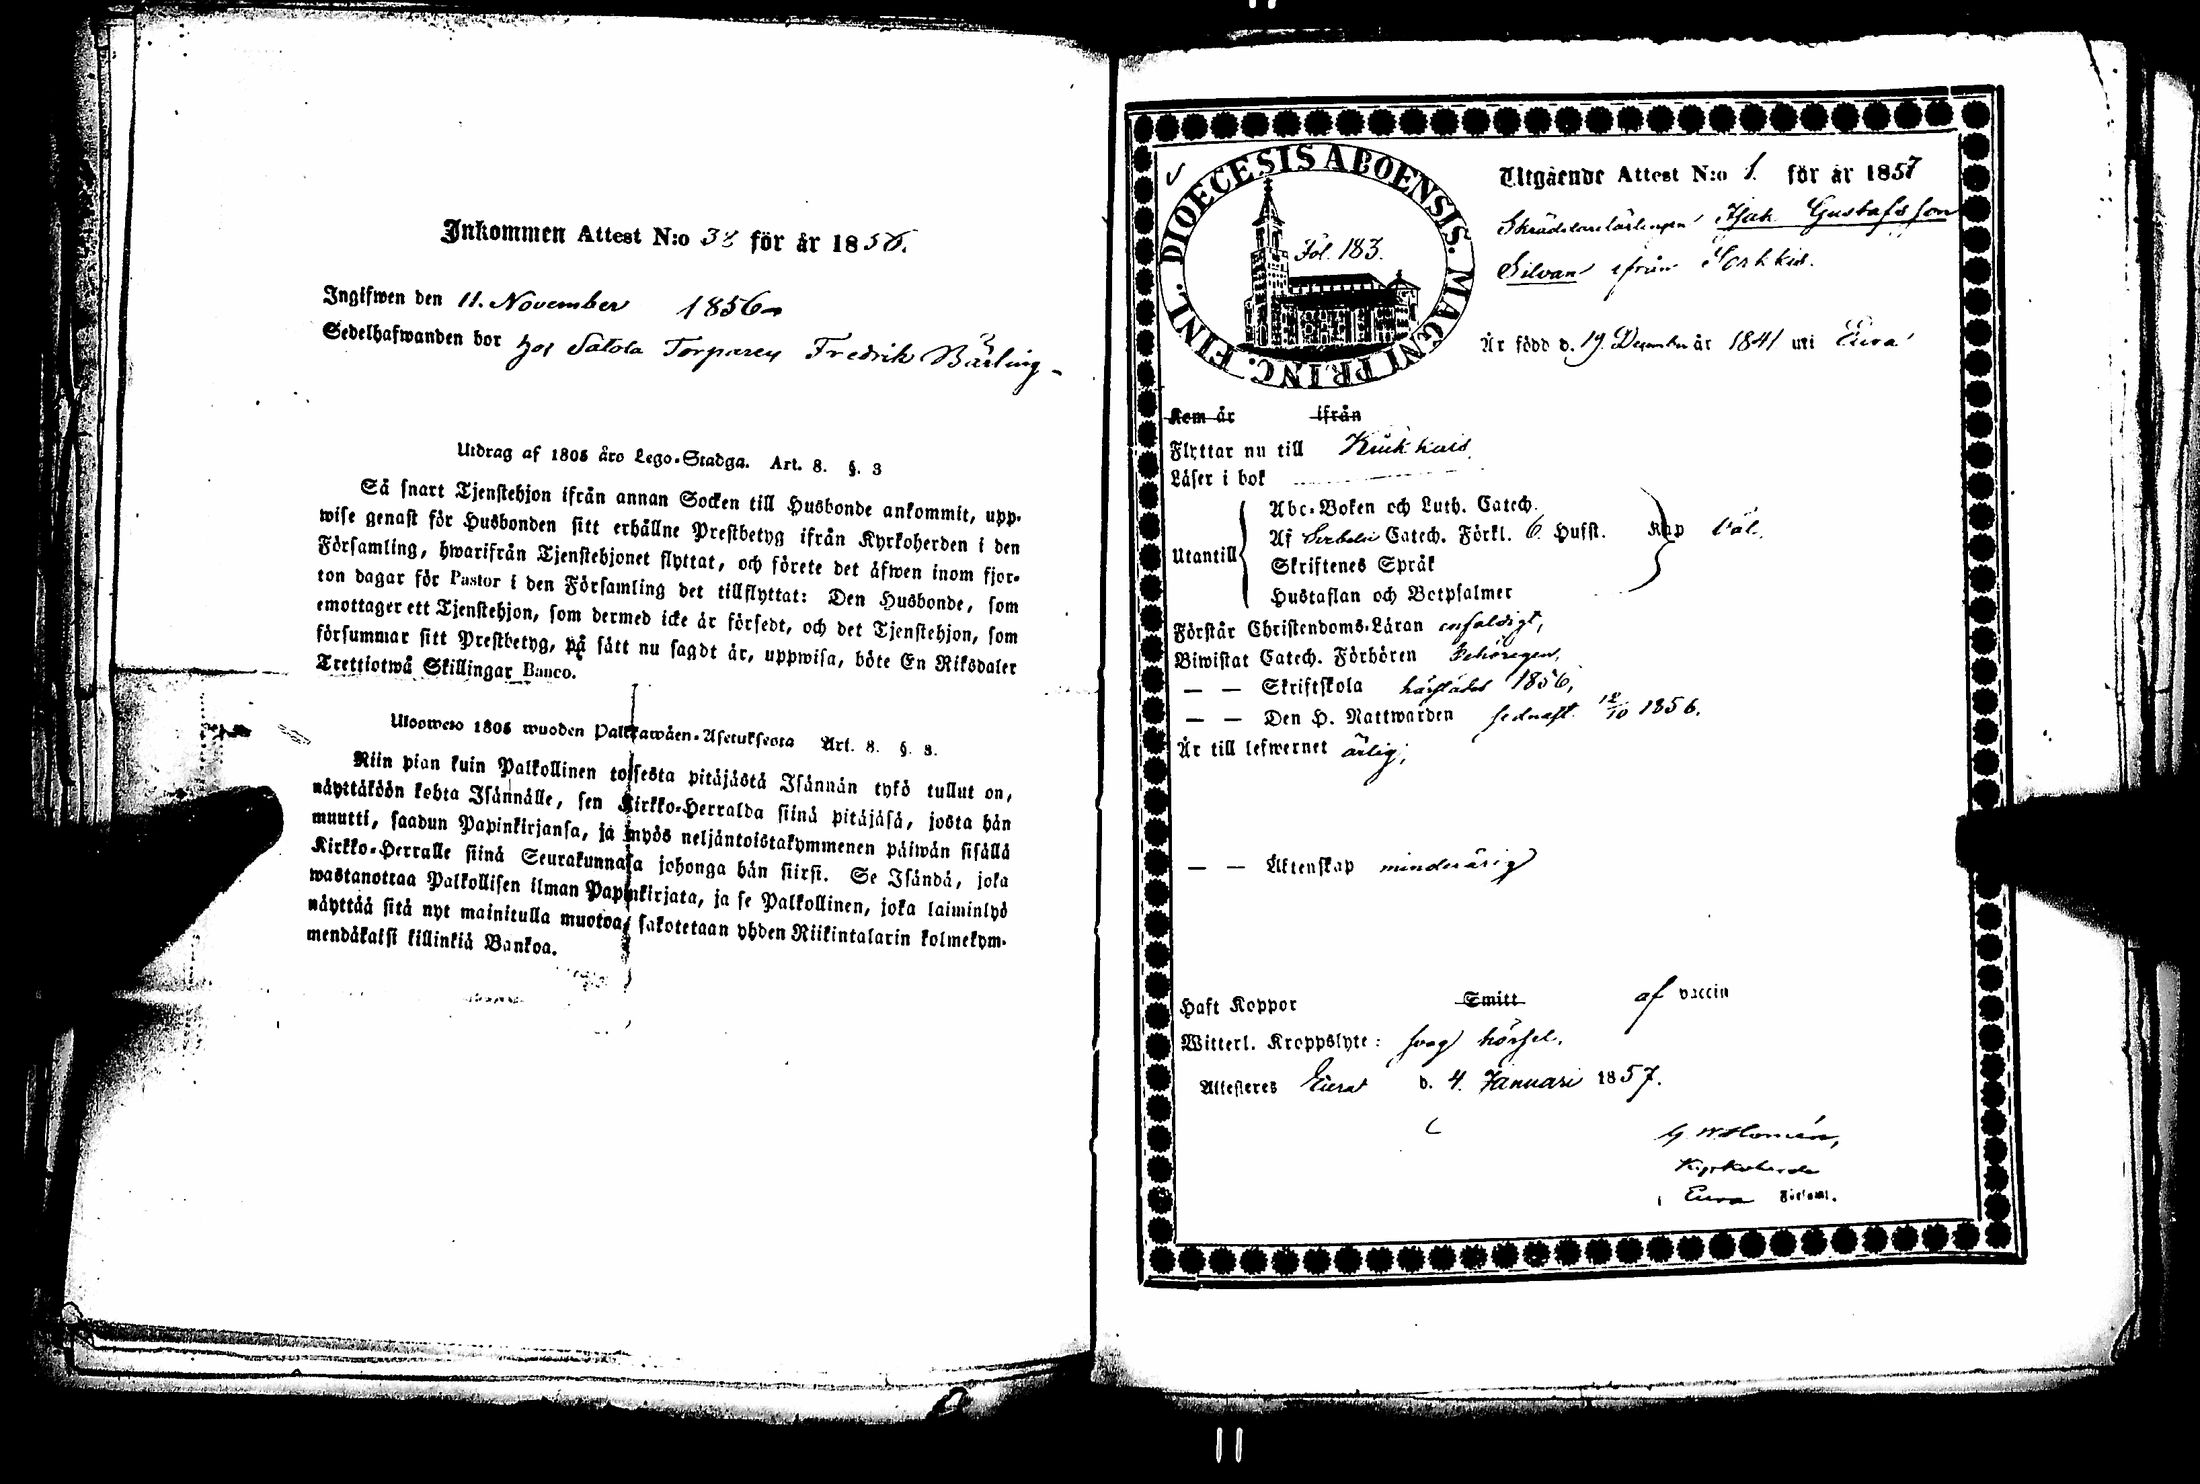 Inkommen Attest N:o 32 för år 1856.
Ingifwen den 11. November 1856
Sedelhafwanden bor hos Satola Torparen Fredrik Bärling
Utdrag af 1805 åro Lego-Stadga. Art. 8. §. 3
Så snart Tjenstehjon ifrån annan Socken till Husbonde ankommit, upp-
wise genast för Husbonden sitt erhållne Prestbetyg ifrån Kyrkoherden i den
Församling, hwarifrån Tjenstehjonet flyttat, och förete det äfwen inom fjor-
ton dagar för Pastor i den Församling det tillflyttat: Den Husbonde, som
emottager ett Tjenstehjon, som dermed icke är försedt, och det Tjenstehjon, som
försummar sitt Prestbetyg, på sätt nu sagdt är, uppwisa, böte En Riksdaler
Trettiotwå Skillingar Banco.
Ulosweto 1805 wuoden Palkkawäen-Asetuksesta Art. 8. §. 3.
Niin pian kuin Palkollinen toisesta pitäjästä Isännän tykö tullut on,
näyttäköön kohta Isännälle, sen Kirkko-Herralda siinä pitäjäsä, josta hän
muutti, saadun Papinkirjansa, ja myös neljäntoistakymmenen päiwän sisällä
Kirkko-Herralle siinä Seurakunnasa johonga hän siirsi. Se Isändä, joka
wastanottaa Palkollisen ilman Papinkirjata, ja se Palkollinen, joka laiminlyö
näyttää sitä nyt mainitulla muotoa, sakotetaan yhden Riikintalarin kolmekym-
mendäkaksi killinkiä Bankoa.
DIOECESIS ABOENSIS. MAGNI PRINC. FINL.
Fol. 183.
Utgående Attest N:o 1. för år 1857
Skräddarelärlingen Isak Gustafsson
Silvan ifrån Sorkkis.
Är född d. 19 December år 1841 uti Eura
Kom år ifrån
Flyttar nu till
Läser i bok
Utantill
Abc-Boken och Luth. Catech.
Af Catech. Förkl. 6 Hufst. Kap väl.
Skriftenes Språk
Hustaflan och Botpsalmer
Förstår Christendoms-Läran enfaldigt,
Biwistat Catech. Förhören behörigen,
— — Skriftskola härstädes 1856,
— — Den H. Nattwarden sednast 12/10 1856.
Är till lefwernet ärlig,
— — Äktenskap minderårig
Haft Koppor Smitt af vaccin
Witterl. Kroppslyte: svag hörsel.
Attesteres Eura d. 4. Januari 1857.
G W Homén,
Kyrkoherde
i Eura Församl.